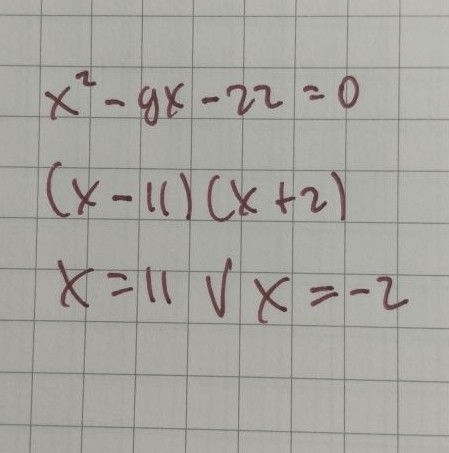 x² - 9x - 22 = 0
(x - 11)(x + 2)
x = 11 ∨ x = -2